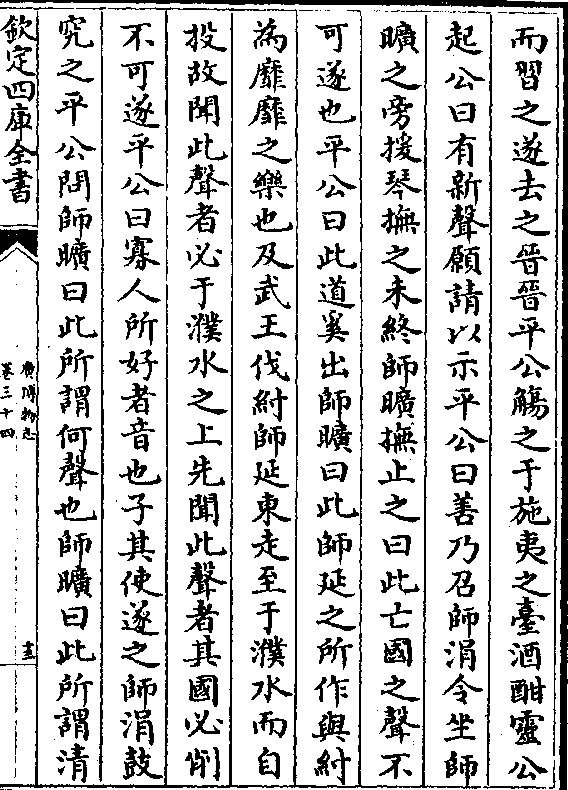 而習之遂去之晉晉平公觴之于施夷之臺酒酣靈公
起公曰有新聲願請以示平公曰善乃召師涓令坐師
曠之旁援琴撫之未終師曠撫止之曰此亡國之聲不
可遂也平公曰此道奚出師曠曰此師延之所作與紂
為靡靡之樂也及武王伐紂師延東走至于濮水而自
投故聞此聲者必于濮水之上先聞此聲者其國必削
不可遂平公曰寡人所好者音也子其使遂之師涓鼓
究之平公問師曠曰此所謂何聲也師曠曰此所謂清
欽定四庫全書
廣博物志
卷三十四
十三